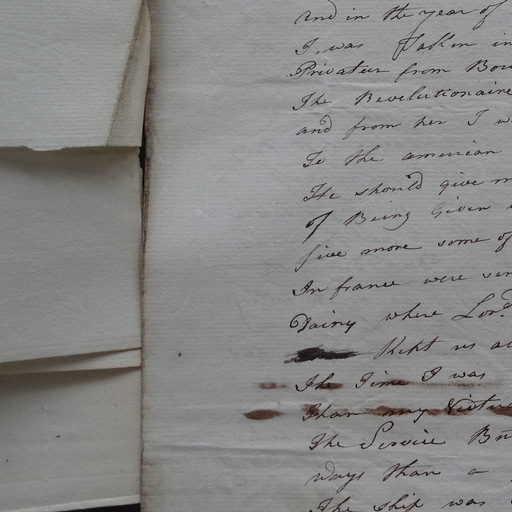 And in the year of
I was Taken in
Privateer from Bou
The Revolutionaire
and from her I w
To the american
He should give m
of Being Given
five more some of
In france were sen
Dairy where Lord
Kept us a
The Time I was
Than my Victu
The Service Bu
ways than a
The ship was